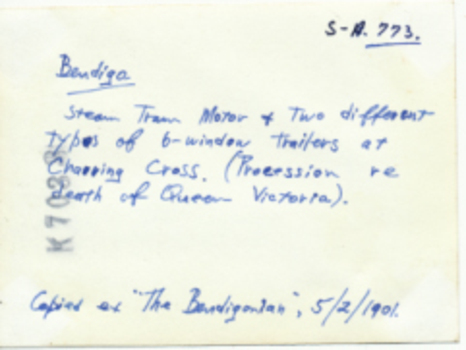 S-A. 773.
Bendigo
Steam Tram Motor & Two different
types of 6-window trailers at
Charring Cross. (Procession re
death of Queen Victoria).
Copied ex "The Bendigonian", 5/2/1901.